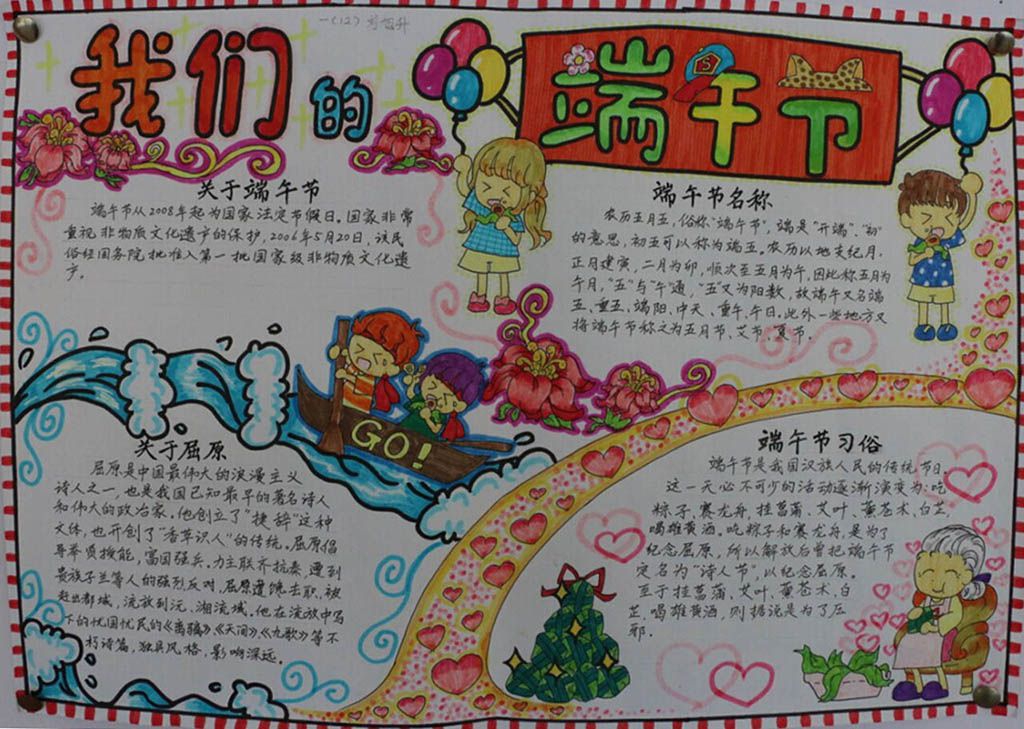 一(12)
我们的
端午节
S
关于端午节
端午节从2008年起为国家法定节假日。国家非常
重视非物质文化遗产的保护,2006年5月20日,该民
俗经国务院批准入第一批国家级非物质文化遗
产。
端午节名称
农历五月五,俗称"端午节",端是"开端"、"初"
的意思,初五可以称为端五。农历以地支纪月,
正月建寅,二月为卯,顺次至五月为午,因此称五月为
午月,"五"与"午"通,"五"又为阳数,故端午又名端
五、重五、端阳、中天、重午、午日。此外一些地方又
将端午节称之为五月节、艾节、夏节。
GO!
关于屈原
屈原是中国最伟大的浪漫主义
诗人之一,也是我国已知最早的著名诗人
和伟大的政治家。他创立了"楚辞"这种
文体,也开创了"香草识人"的传统。屈原倡
导举贤授能,富国强兵,力主联齐抗秦,遭到
贵族子兰等人的强烈反对,屈原遭馋去职,被
赶出都城,流放到沅、湘流域。他在流放中写
下的忧国忧民的《离骚》《天问》、《九歌》等不
朽诗篇,独具风格,影响深远。
端午节习俗
端午节是我国汉族人民的传统节日。
这一天必不可少的活动逐渐演变为:吃
粽子,赛龙舟,挂菖蒲、艾叶,黄苍术,白芷,
喝雄黄酒。吃粽子和赛龙舟,是为了
纪念屈原,所以解放后曾把端午节
定名为"诗人节",以纪念屈原。
至于挂菖蒲、艾叶、黄苍术,白
芷,喝雄黄酒,则据说是为了压
邪。